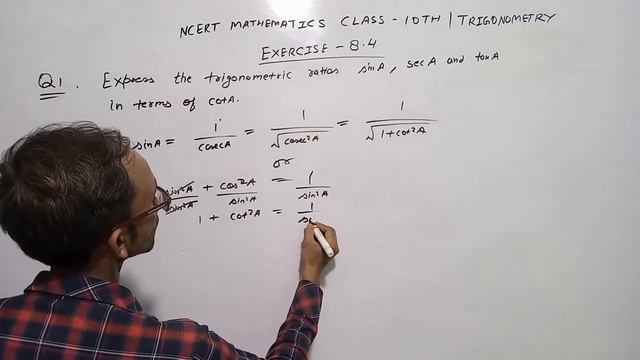 NCERT MATHEMATICS CLASS - 10TH | TRIGONOMETRY
EXERCISE - 8.4
Q1. Express the trigonometric ratios sinA, secA and tanA
in terms of cotA.
sinA = 1/cosecA = 1/√cosec²A = 1/√1+cot²A
or
sin²A/sin²A + cos²A/sin²A = 1/sin²A
1 + cot²A = 1/si